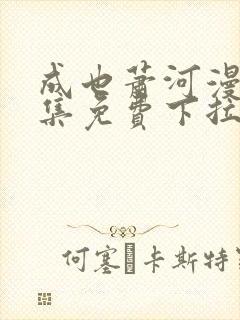 成也萧河漫
集免費下拉
何塞·卡斯特